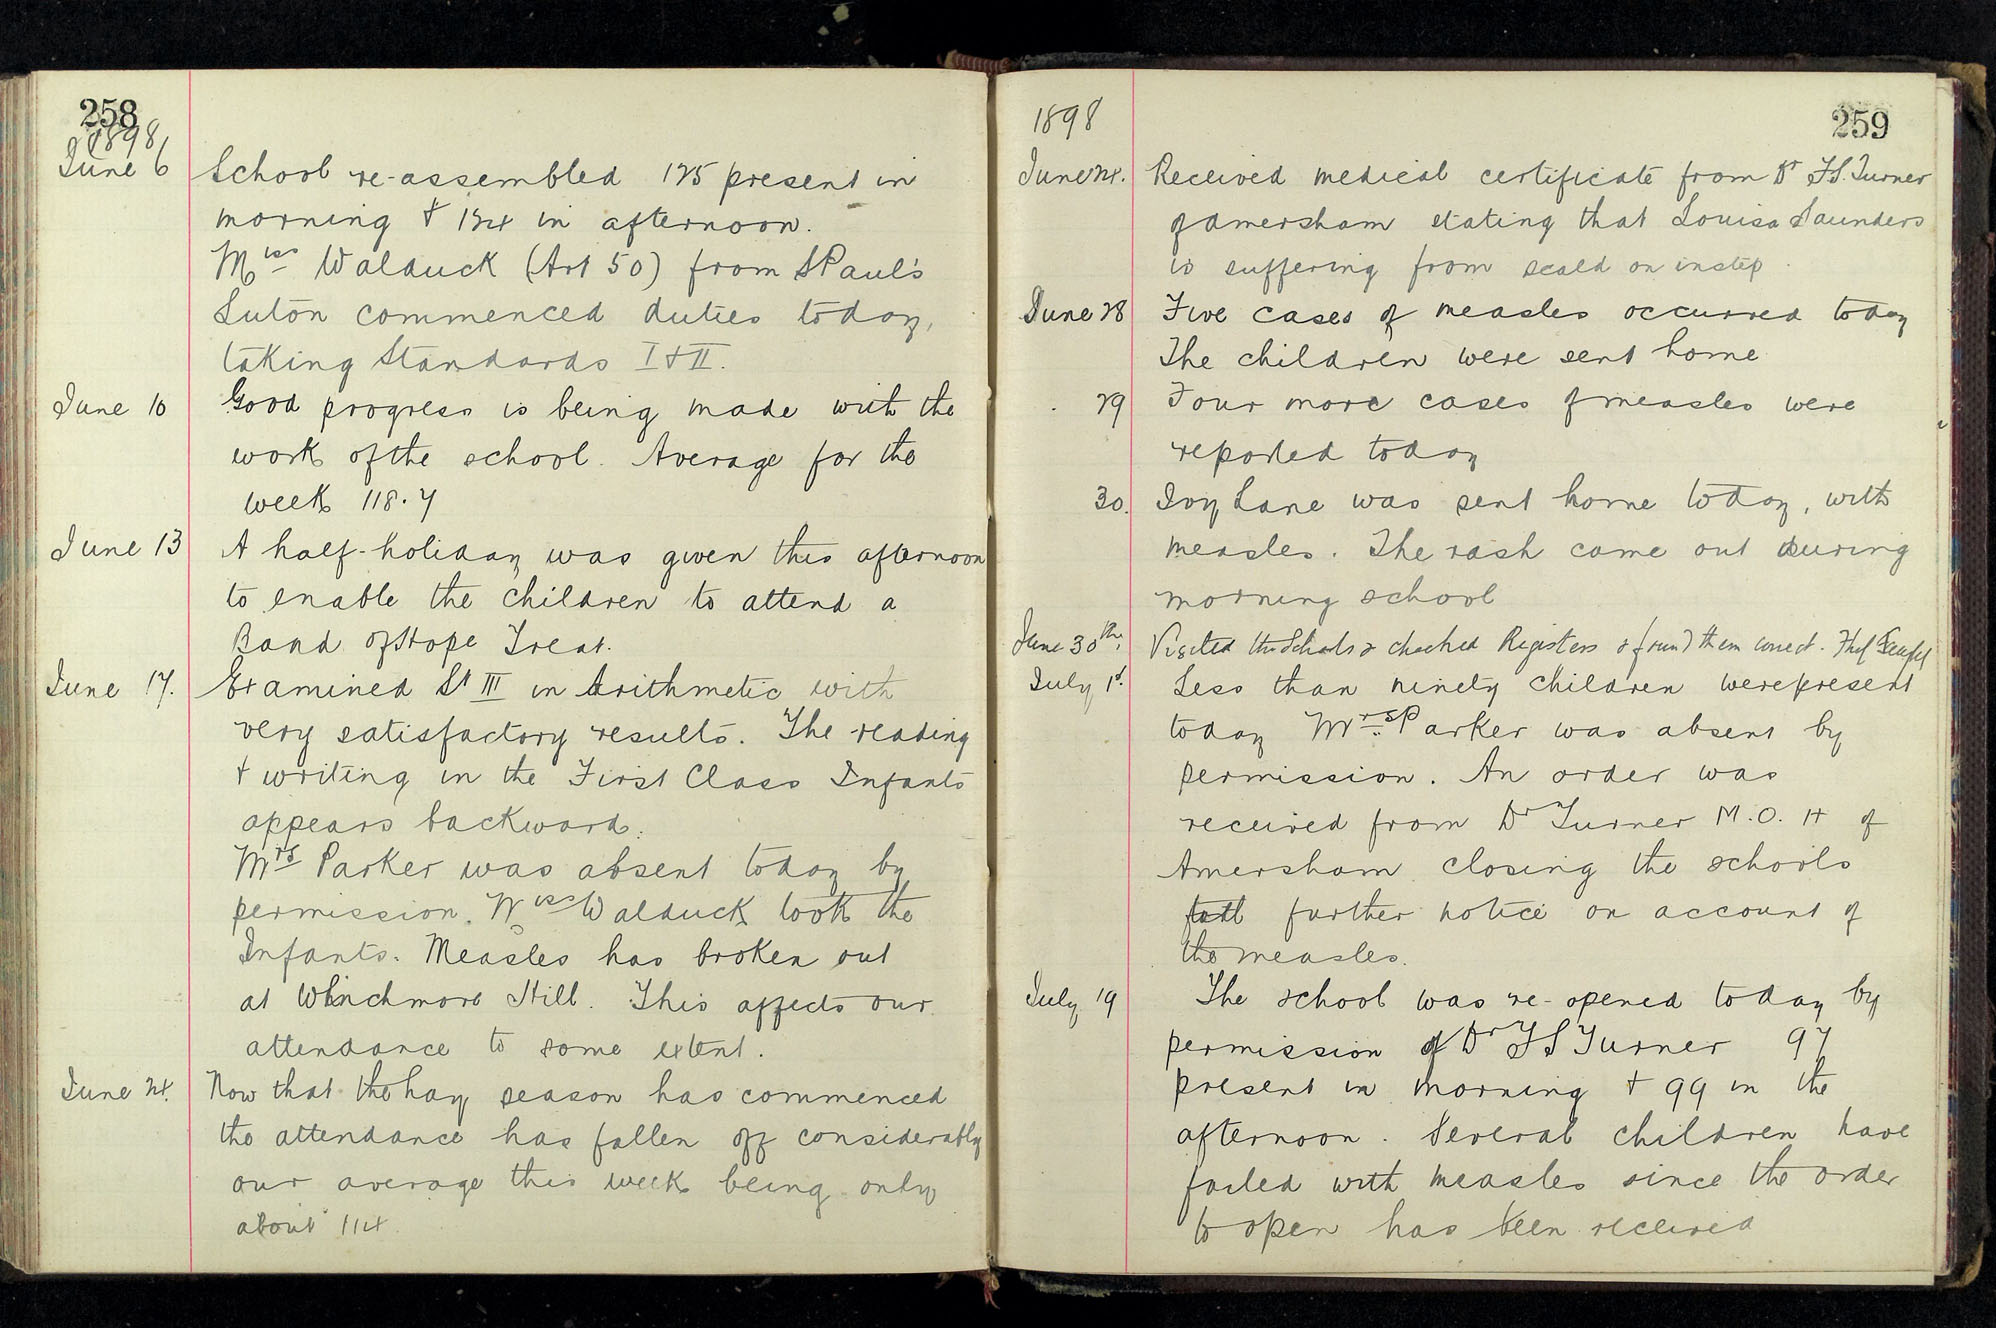 258
1898
June 6 School re-assembled 125 present in
morning & 124 in afternoon.
Miss Walduck (Art 50) from S Paul's
Luton commenced duties today,
taking Standards I & II.
June 10 Good progress is being made with the
work of the school. Average for the
week 118.7
June 13 A half-holiday was given this afternoon
to enable the children to attend a
Band of Hope Treat.
June 17. Examined St III in Arithmetic with
very satisfactory results. The reading
& writing in the First Class Infants
appears backward.
Mrs Parker was absent today by
permission. Miss Walduck took the
Infants. Measles has broken out
at Winchmore Hill. This affects our
attendance to some extent.
June 24. Now that the hay season has commenced
the attendance has fallen off considerably
our average this week being only
about 114.
259
1898
June 24. Received medical certificate from Dr F S. Turner
of Amersham stating that Louisa Saunders
is suffering from scald on instep.
June 28 Five cases of measles occurred today
The children were sent home
29 Four more cases of measles were
reported today
30. Ivy Lane was sent home today, with
measles. The rash came out during
morning school
June 30th. Visited the Schools & checked Registers & found them correct.
July 1st. Less than ninety children were present
today Mrs Parker was absent by
permission. An order was
received from Dr Turner M.O.H of
Amersham closing the schools
till further notice on account of
the measles.
July 19 The school was re-opened today by
permission of Dr F S Turner 97
present in morning & 99 in the
afternoon. Several children have
failed with measles since the order
to open has been received